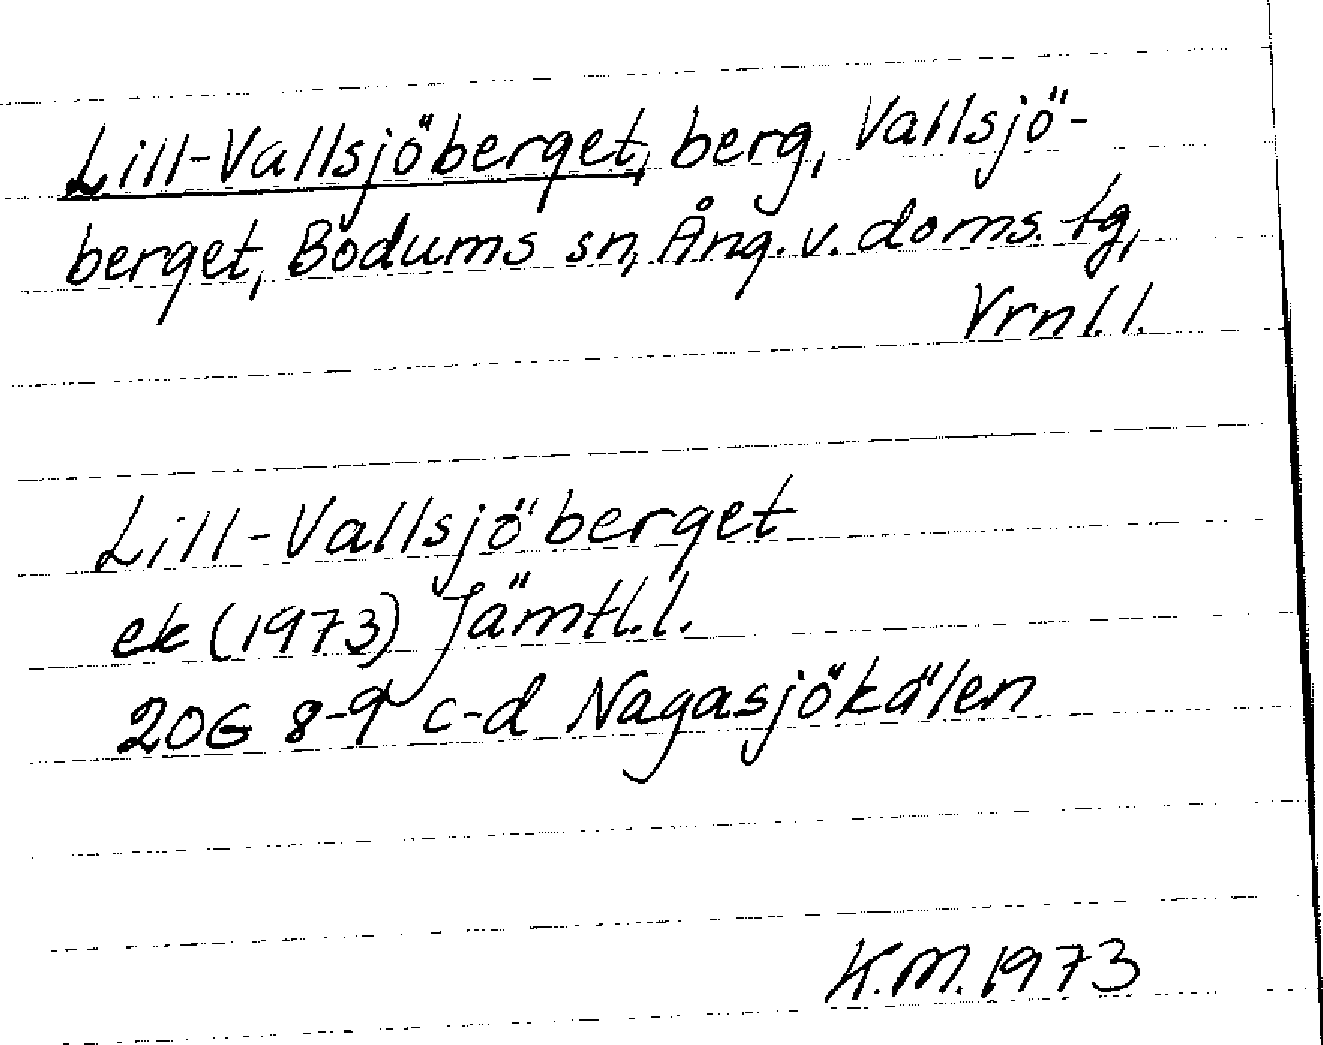 Lill-Vallsjöberget, berg, Vallsjö-
berget, Bodums sn, Ång. v. doms. tg,
Vrnl.l.
Lill-Vallsjöberget
ek (1973) Jämtl.l.
20G 8-9 c-d Nagasjökälen
K.M. 1973